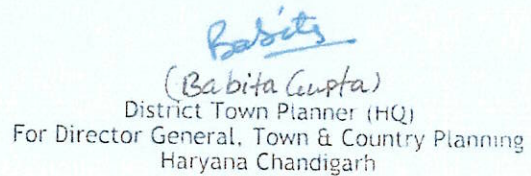 Babita
(Babita Gupta)
District Town Planner (HQ)
For Director General, Town & Country Planning
Haryana Chandigarh